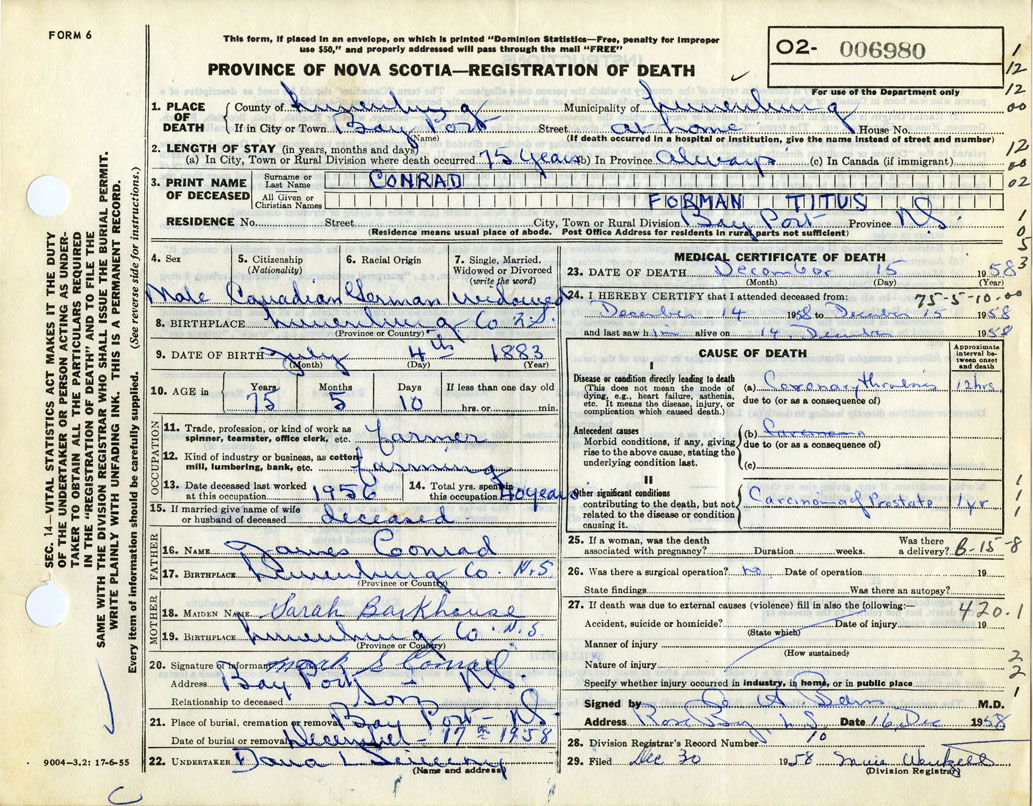 FORM 6
This form, if placed in an envelope, on which is printed "Dominion Statistics—Free, penalty for improper
use $50," and properly addressed will pass through the mail "FREE"
PROVINCE OF NOVA SCOTIA—REGISTRATION OF DEATH
O2- 006980
For use of the Department only
1. PLACE OF DEATH County of Lunenburg Municipality of Lunenburg
If in City or Town Bay Port Street at home House No.
(Name) (If death occurred in a hospital or institution, give the name instead of street and number)
2. LENGTH OF STAY (in years, months and days)
(a) In City, Town or Rural Division where death occurred 75 years (b) In Province always (c) In Canada (if immigrant)
3. PRINT NAME OF DECEASED Surname or Last Name CONRAD
All Given or Christian Names FORMAN TITUS
RESIDENCE No. Street City, Town or Rural Division Bay Port Province N.S.
(Residence means usual place of abode. Post Office Address for residents in rural parts not sufficient)
4. Sex 5. Citizenship (Nationality) 6. Racial Origin 7. Single, Married, Widowed or Divorced (write the word)
Male Canadian German widowed
8. BIRTHPLACE Lunenburg Co N.S.
(Province or Country)
9. DATE OF BIRTH July 4th 1883
(Month) (Day) (Year)
10. AGE in Years Months Days If less than one day old
75 5 10 hrs. or min.
OCCUPATION
11. Trade, profession, or kind of work as
spinner, teamster, office clerk, etc. farmer
12. Kind of industry or business, as cotton
mill, lumbering, bank, etc. farming
13. Date deceased last worked
at this occupation 1956
14. Total yrs. spent in
this occupation 40 years
15. If married give name of wife
or husband of deceased deceased
FATHER
16. NAME James Conrad
17. BIRTHPLACE Lunenburg Co. N.S.
(Province or Country)
MOTHER
18. MAIDEN NAME Sarah Barkhouse
19. BIRTHPLACE Lunenburg Co. N.S.
(Province or Country)
20. Signature of informant Mark S Conrad
Address Bay Port N.S.
Relationship to deceased Son
21. Place of burial, cremation or removal Bay Port N.S.
Date of burial or removal December 17th 1958
22. UNDERTAKER Dana L
(Name and address)
MEDICAL CERTIFICATE OF DEATH
23. DATE OF DEATH December 15 1958
(Month) (Day) (Year)
24. I HEREBY CERTIFY that I attended deceased from: 75-5-10-00
December 14 1958 to December 15 1958
and last saw him alive on 14 December 1958
CAUSE OF DEATH
Approximate interval between onset and death
I
Disease or condition directly leading to death
(This does not mean the mode of
dying, e.g., heart failure, asthenia,
etc. It means the disease, injury, or
complication which caused death.)
(a) Coronary thrombosis 12 hrs
due to (or as a consequence of)
Antecedent causes
Morbid conditions, if any, giving
rise to the above cause, stating the
underlying condition last.
(b)
due to (or as a consequence of)
(c)
II
Other significant conditions
contributing to the death, but not
related to the disease or condition
causing it.
Carcinoma of Prostate 1 yr
25. If a woman, was the death
associated with pregnancy? Duration weeks. Was there
a delivery? B-15-8
26. Was there a surgical operation? no. Date of operation? 19
State findings Was there an autopsy?
27. If death was due to external causes (violence) fill in also the following:— 420.1
Accident, suicide or homicide? Date of injury 19
(State which)
Manner of injury
(How sustained)
Nature of injury
Specify whether injury occurred in industry, in home, or in public place
Signed by M.D.
Address Rose Bay N.S. Date 16 Dec 1958
28. Division Registrar's Record Number 10
29. Filed Dec 30 1958
(Division Registrar)
SEC. 14—VITAL STATISTICS ACT MAKES IT THE DUTY
OF THE UNDERTAKER OR PERSON ACTING AS UNDER-
TAKER TO OBTAIN ALL THE PARTICULARS REQUIRED
IN THE "REGISTRATION OF DEATH" AND TO FILE THE
SAME WITH THE DIVISION REGISTRAR WHO SHALL ISSUE THE BURIAL PERMIT.
WRITE PLAINLY WITH UNFADING INK. THIS IS A PERMANENT RECORD.
Every item of information should be carefully supplied. (See reverse side for instructions.)
9004—3.2: 17-6-55
1
12
12
00
12
00
02
1
0
5
3
1
1
1
2
2
1